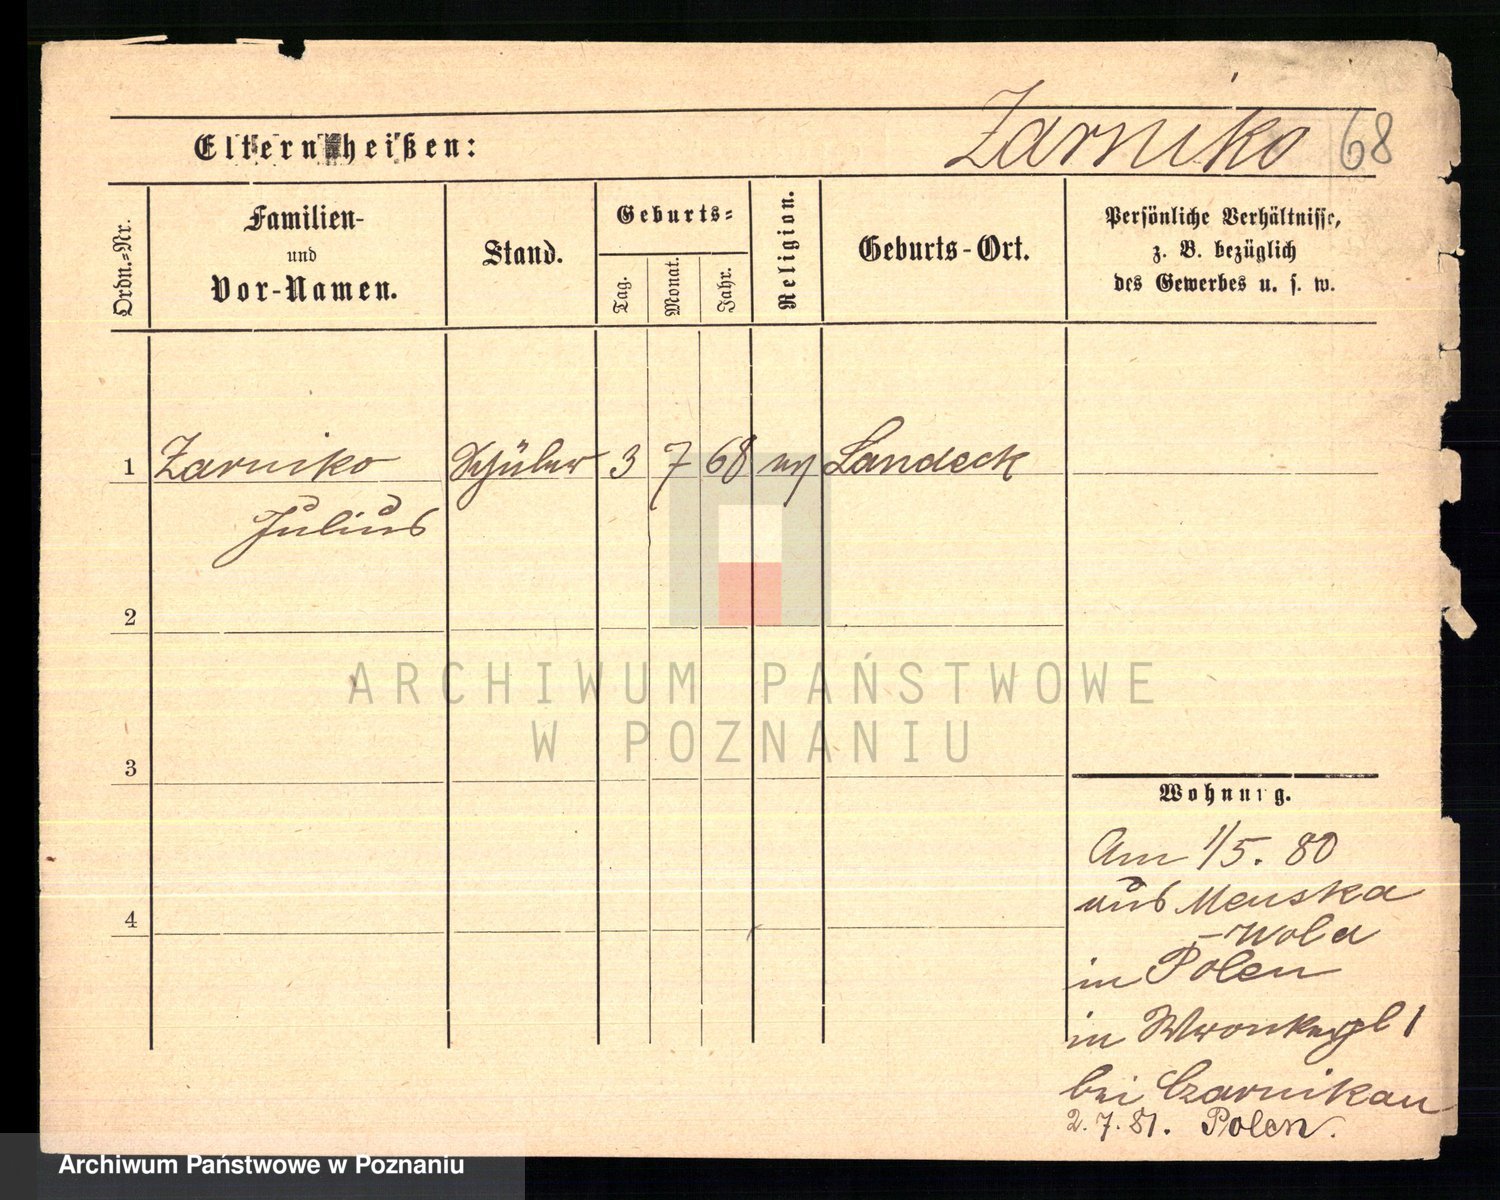 Zarniko 68
Eltern heißen:
Ordn.-Nr.
Familien-
und
Vor-Namen.
Stand.
Geburts-
Tag.
Monat.
Jahr.
Religion.
Geburts-Ort.
Persönliche Verhältnisse,
z. B. bezüglich
des Gewerbes u. s. w.
1 Zarniko Schüler 3 7 68 Landeck
Julius
2
3
4
Wohnung.
Am 1/5. 80
aus Menska
-Wola
in Polen
in Wronkerpl 1
bei Czarnikau
2. 7. 81. Polen.
ARCHIWUM PAŃSTWOWE
W POZNANIU
Archiwum Państwowe w Poznaniu